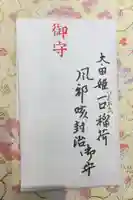 太田姫一口稲荷
風邪咳封治御守
御守